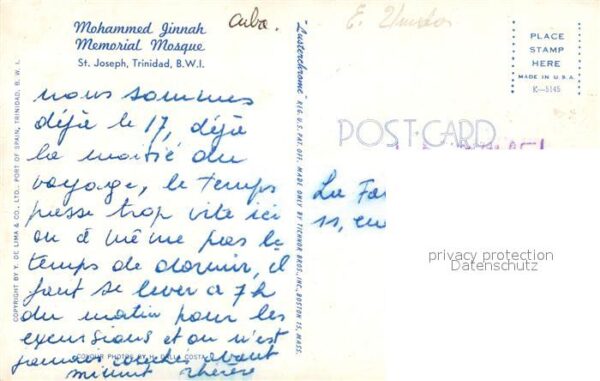 Mohammed Jinnah
Memorial Mosque
St. Joseph, Trinidad, B.W.I.
Cuba.
nous sommes
déjà le 17, déjà
la moitié du
voyage, le temps
passe trop vite ici
on a même pas le
temps de dormir, il
faut se lever à 7h
du matin pour les
excursions et on n'est
jamais couchés avant
minuit Thérèse
COLOUR PHOTOS BY H. DELLA COSTA
COPYRIGHT BY Y. DE LIMA & CO., LTD., PORT OF SPAIN, TRINIDAD, B. W. I.
"Lusterchrome" REG. U.S. PAT. OFF. MADE ONLY BY TICHNOR BROS., INC., BOSTON 15, MASS.
E.
PLACE
STAMP
HERE
MADE IN U.S.A.
K-5145
POST CARD
La
11,
privacy protection
Datenschutz